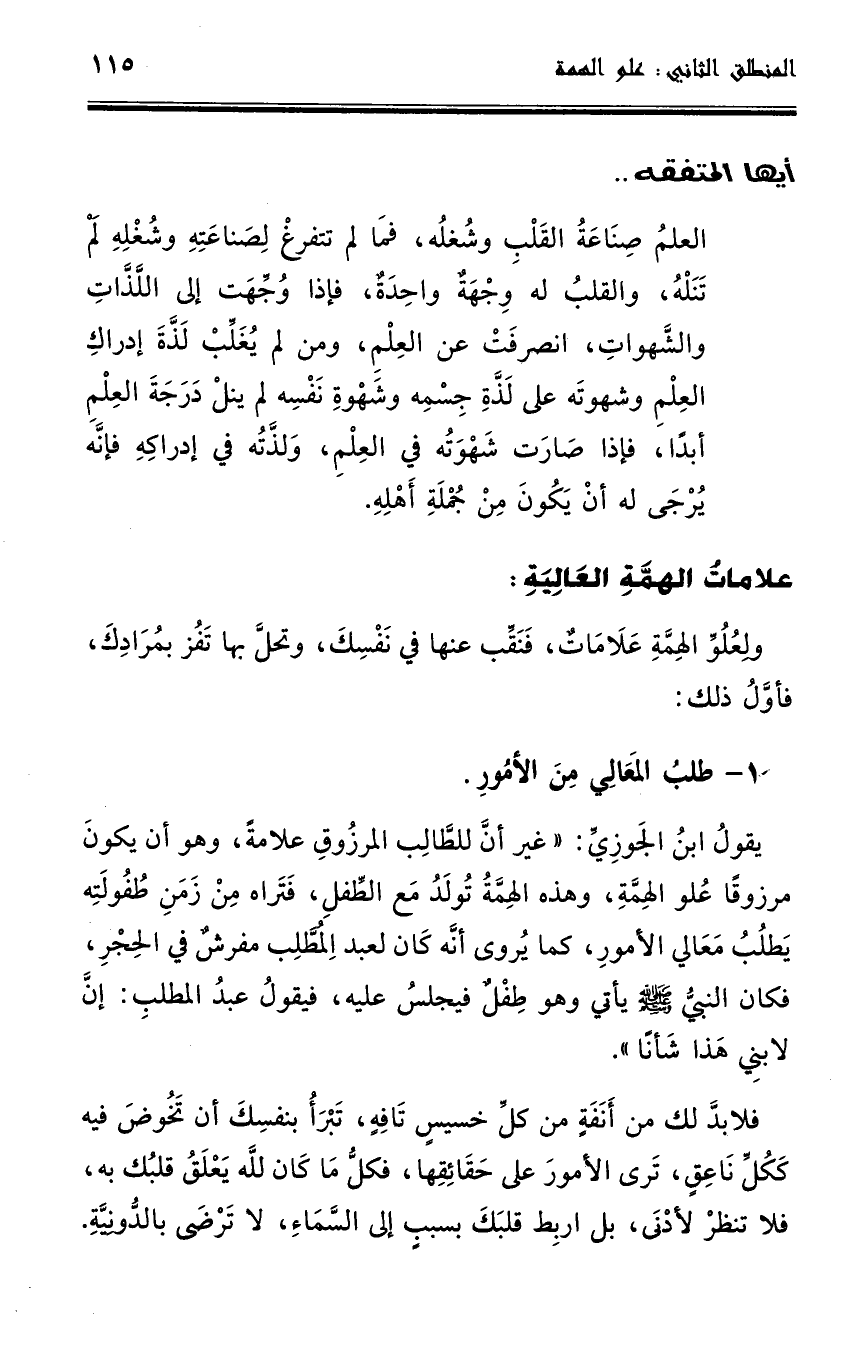 المنطلق الثاني : علو الهمة ١١٥
أيها المتفقه ..
العلمُ صِنَاعَةُ القَلْبِ وشُغلُه، فمَا لم تتفرغْ لِصَناعَتِهِ وشُغْلِهِ لَمْ
تَنَلْهُ، والقلبُ له وِجْهَةٌ واحِدَةٌ، فإذا وُجِّهَت إلى اللَّذَّاتِ
والشَّهواتِ، انصرفَتْ عن العِلْمِ، ومن لم يُغَلِّبْ لَذَّةَ إدراكِ
العِلْمِ وشهوتَه على لَذَّةِ جِسْمِه وشَهْوةِ نَفْسِه لم ينلْ دَرَجَةَ العِلْمِ
أبدًا، فإذا صَارَت شَهْوَتُه في العِلْمِ، وَلذَّتُه في إدراكِهِ فإنَّه
يُرْجَى له أنْ يَكُونَ مِنْ جُمْلَةِ أَهْلِهِ.
علاماتُ الهِمَّةِ العَالِيَةِ :
ولِعُلُوِّ الهِمَّةِ عَلَامَاتٌ، فَنَقِّب عنها في نَفْسِكَ، وتحلَّ بها تَفُز بمُرَادِكَ،
فأوَّلُ ذلك :
١- طلبُ المَعَالِي مِنَ الأمُورِ.
يقولُ ابنُ الجَوزِيِّ : « غير أنَّ للطَّالِب المرزُوقِ علامةً، وهو أن يكونَ
مرزوقًا عُلو الهِمَّةِ، وهذه الهِمَّةُ تُولَدُ مَع الطِّفلِ، فَتَراه مِنْ زَمَنِ طُفُولَتِه
يَطلُبُ مَعَالي الأمورِ، كما يُروى أنَّه كَان لعبد المُطَّلِب مفرشٌ في الحِجْرِ،
فكان النبيُّ ﷺ يأتي وهو طِفْلٌ فيجلسُ عليه، فيقولُ عبدُ المطلبِ : إنَّ
لابنِي هَذا شَأنًا ».
فلابدَّ لك من أَنَفَةٍ من كلِّ خسيسٍ تَافِهٍ، تَبْرَأُ بنفسِكَ أن تَخُوضَ فيه
كَكُلِّ نَاعِقٍ، تَرى الأمورَ على حَقَائِقِها، فكلُّ مَا كَان للَّه يَعْلَقُ قلبُك به،
فلا تنظرْ لأدْنَى، بل اربِط قلبَكَ بسببٍ إلى السَّمَاءِ، لا تَرْضَى بالدُّونِيَّةِ.